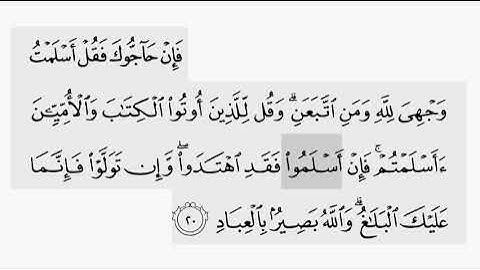 فَإِنْ حَآجُّوكَ فَقُلْ أَسْلَمْتُ
وَجْهِىَ لِلَّهِ وَمَنِ ٱتَّبَعَنِ ۗ وَقُل لِّلَّذِينَ أُوتُوا۟ ٱلْكِتَـٰبَ وَٱلْأُمِّيِّـۧنَ
ءَأَسْلَمْتُمْ ۚ فَإِنْ أَسْلَمُوا۟ فَقَدِ ٱهْتَدَوا۟ ۖ وَّإِن تَوَلَّوْا۟ فَإِنَّمَا
عَلَيْكَ ٱلْبَلَـٰغُ ۗ وَٱللَّهُ بَصِيرٌۢ بِٱلْعِبَادِ ٢٠